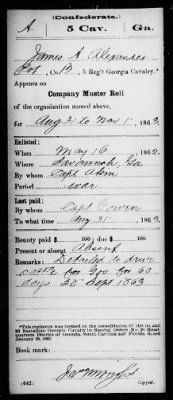 (Confederate.)
A 5 Cav. Ga.
James A Alexander
Pvt, Co. B, 5 Reg't Georgia Cavalry.*
Appears on
Company Muster Roll
of the organization named above,
for Aug 31 to Nov 1, 1863.
Enlisted:
When May 16, 1862.
Where Savannah, Ga
By whom Capt
Period war
Last paid:
By whom Capt Bowen
To what time Aug 31, 1863.
Bounty paid $ 100; due $ 100
Present or absent Absent
Remarks: Detailed to drive
cattle for Gov. for 60
days 25 Sept 1863
*This regiment was formed by the consolidation of the 1st and
2d Battalions Georgia Cavalry by Special Orders No. 20 Head-
quarters District of Georgia, South Carolina and Florida, dated
January 20, 1863.
Book mark:
(642)
Copyist.